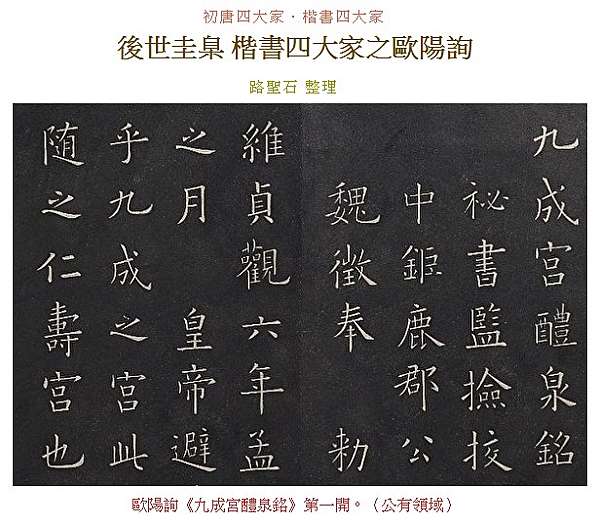 初唐四大家．楷書四大家
後世圭臬 楷書四大家之歐陽詢
路聖石 整理
九成宮醴泉銘
祕書監撿挍
中鉅鹿郡公
魏徵奉 勑
維貞觀六年孟
之月 皇帝避
乎九成之宮此
随之仁壽宮也
歐陽詢《九成宮醴泉銘》第一開。（公有領域）